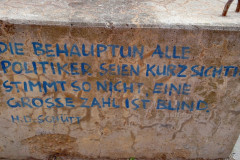 DIE BEHAUPTUN ALLE
POLITIKER SEIEN KURZSICHTI
STIMMT SO NICHT EINE
GROSSE ZAHL IST BLIND